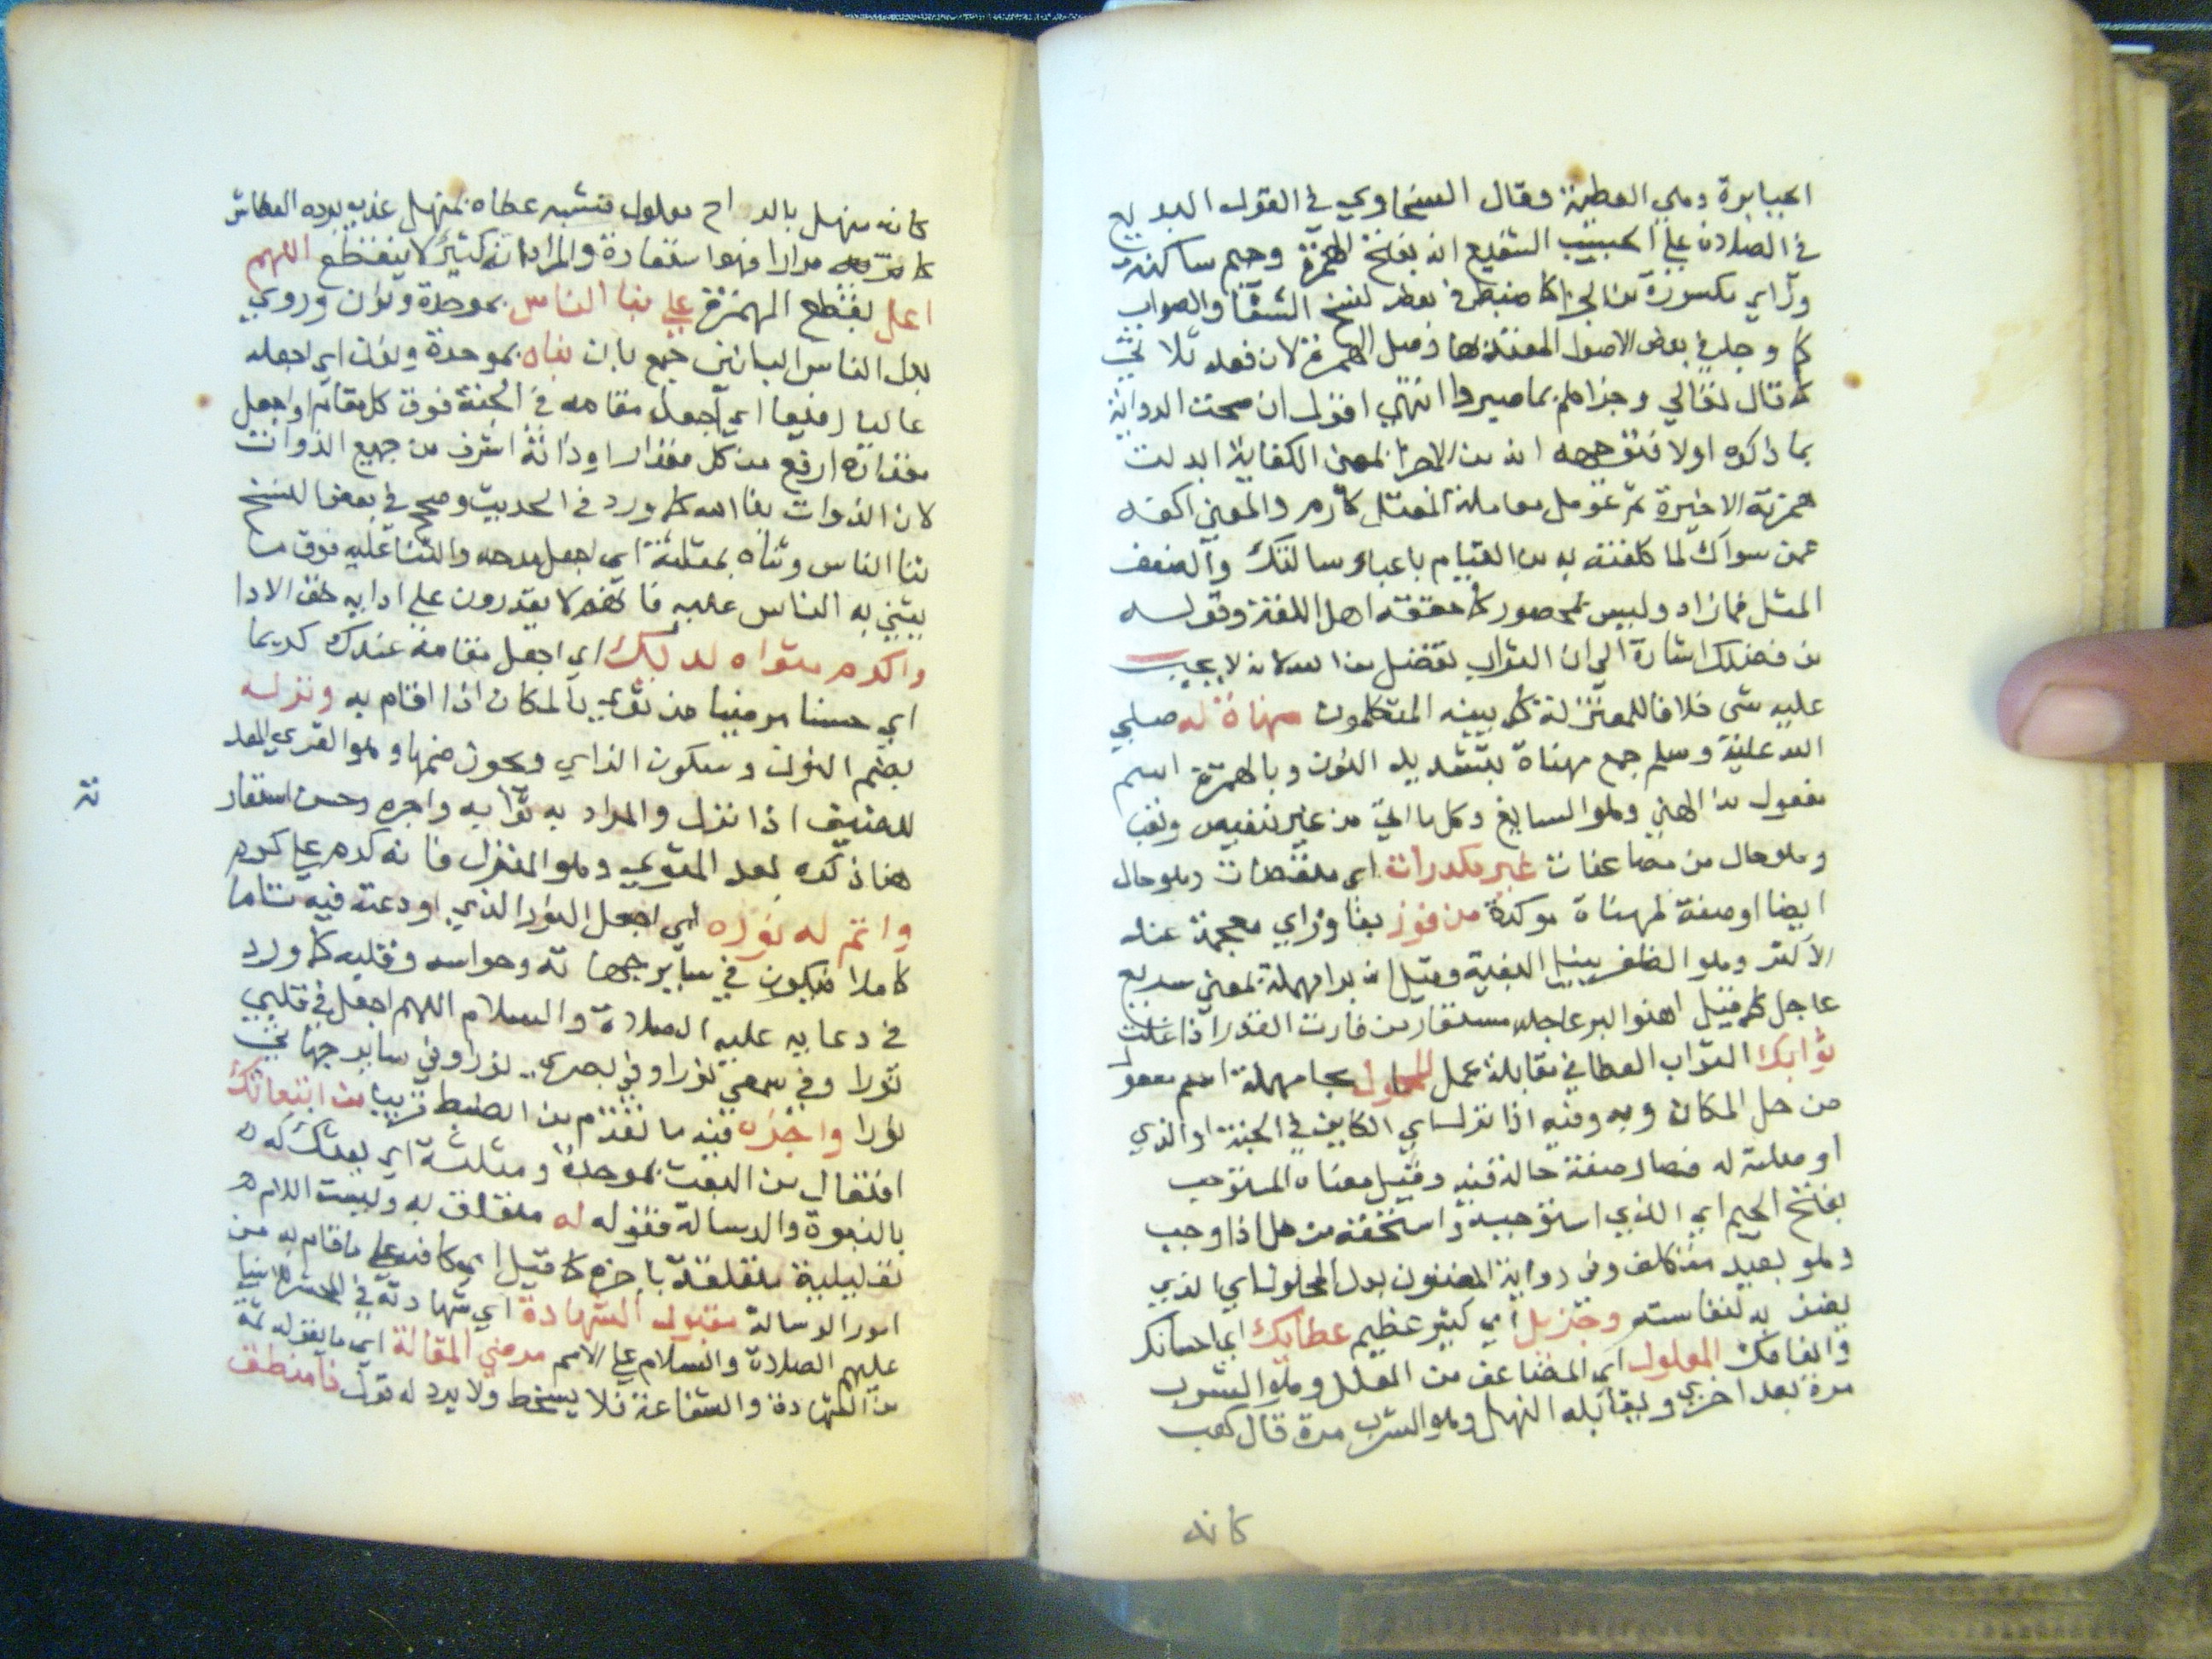 الجبابرة وهي العطية وقال السخاوي في القول البديع
في الصلاة على الحبيب الشفيع انه بفتح الهمزة وجيم ساكنة
وزاي مكسورة من الجزا كما ضبط في بعض نسخ الشفا والصواب
كما وجد في بعض الاصول المعتمدة وصل الهمزة لان فعله ثلاثي
كما قال تعالى وجزاهم بما صبروا انتهى اقول ان صحت الرواية
بما ذكره اولا فتوجيهه انه من الاجزا بمعنى الكفاية ابدلت
همزته الاخيرة ثم عومل معاملة المعتل كارم والمعنى اكفه
عمن سواك لما كلفته به من القيام باعباء رسالتك والضعف
المثل فما زاد وليس بمحصور كما حققه اهل اللغة وقوله
من فضلك اشارة الى ان الثواب تفضل من الله لانه لا يجب
عليه شي خلافا للمعتزلة كما بينه المتكلمون مهناة له صلى
الله عليه وسلم جمع مهناة بتشديد النون وبالهمزة اسم
مفعول من الهني وهو السايغ وكل ما اتى من غير تنغيص وتعب
وهو حال من مضاعفات غير مكدرات اي منغصات وهو حال
ايضا او صفة لمهناة موكدة من فوز بفا وزاي معجمة عند
الاكثر وهو الظفر بنيل البغية وقيل انه برا مهملة بمعنى سريع
عاجل كما قيل اهنوا البر عاجله مستعار من فارت القدر اذا غلت
ثوابك الثواب العطا في مقابلة عمل المحلول بحا مهملة اسم مفعول
من حل المكان وبه وفيه اذا نزل اي الكاين في الجنة او الذي
او صلته له فصار صفة حالة فيه وقيل معناه المستوجب
بفتح الجيم اي الذي استوجبه واستحقه من حل اذا وجب
وهو بعيد متكلف وفي رواية المضنون بدل المحلول اي الذي
يضن به لنفاسته وجزيل اي كثير عظيم عطايك اي احسانك
وانعامك المعلول اي المضاعف من العلل وهو الشرب
مرة بعد اخرى ويقابله النهل وهو الشرب مرة قال كعب
كانه
كانه منهل بالراح معلول فشبه عطاه بمنهل عذب يرده العطاش
مرارا فهو استعارة والمراد انه كثير لا ينقطع اللهم
اعل بقطع الهمزة على بنا الناس بموحدة ونون وروي
بدل الناس البانين جمع بان بناه بموحدة ونون اي اجعله
عاليا رفيعا اي اجعل مقامه في الجنة فوق كل مقام او اجعل
مقداره ارفع من كل مقدار او ذاته اشرف من جميع الذوات
لان الذوات بنا الله كما ورد في الحديث وصحح في بعض النسخ
ثنا الناس وثناه بمثلثة اي اجعل مدحه والثنا عليه فوق ما
يثني به الناس عليه فانهم لا يقدرون على ادايه حق الادا
واكرم مثواه لديك اي اجعل مقامه عندك كريما
اي حسنا مرضيا من ثوى بالمكان اذا اقام به ونزله
بضم النون وسكون الزاي ويجوز ضمها وهو القرى المعد
للضيف اذا نزل والمراد به ثوابه واجره وحسن استعار
ته
هنا ذكره بعد المثوى وهو المنزل فانه كرم على كرم
واتم له نوره اي اجعل النور الذي اودعته فيه تاما
كاملا فيكون في ساير جهاته وحواسه وقلبه كما ورد
في دعايه عليه الصلاة والسلام اللهم اجعل في قلبي
نورا وفي سمعي نورا وفي بصري نورا وفي ساير جهاتي
نورا واجزه فيه ما تقدم من الضبط قريبا من ابتعاثك
افتعال من البعث بموحدة ومثلثة اي بعثك له
بالنبوة والرسالة فقوله له متعلق به وليست اللام
تعليلية متعلقة باجزه كما قيل اي كافيه على ما قام به من
امور الرسالة مقبول الشهادة اي شهادته في المحشر لانبيا
عليهم الصلاة والسلام على الامم مرضي المقالة اي ما يقوله ثمة
من الشهادة والشفاعة فلا يسخط ولا يرد له قول ذا منطق